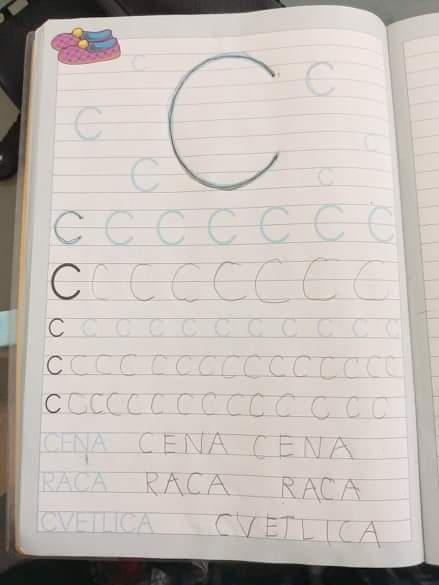 C
C C
C C
C C
C C C C C C C
C C C C C C C C
C C C C C C C C C C C
C C C C C C C C C C C C C C C
C C C C C C C C C C C C C C
CENA CENA CENA
RACA RACA RACA
CVETLICA CVETLICA